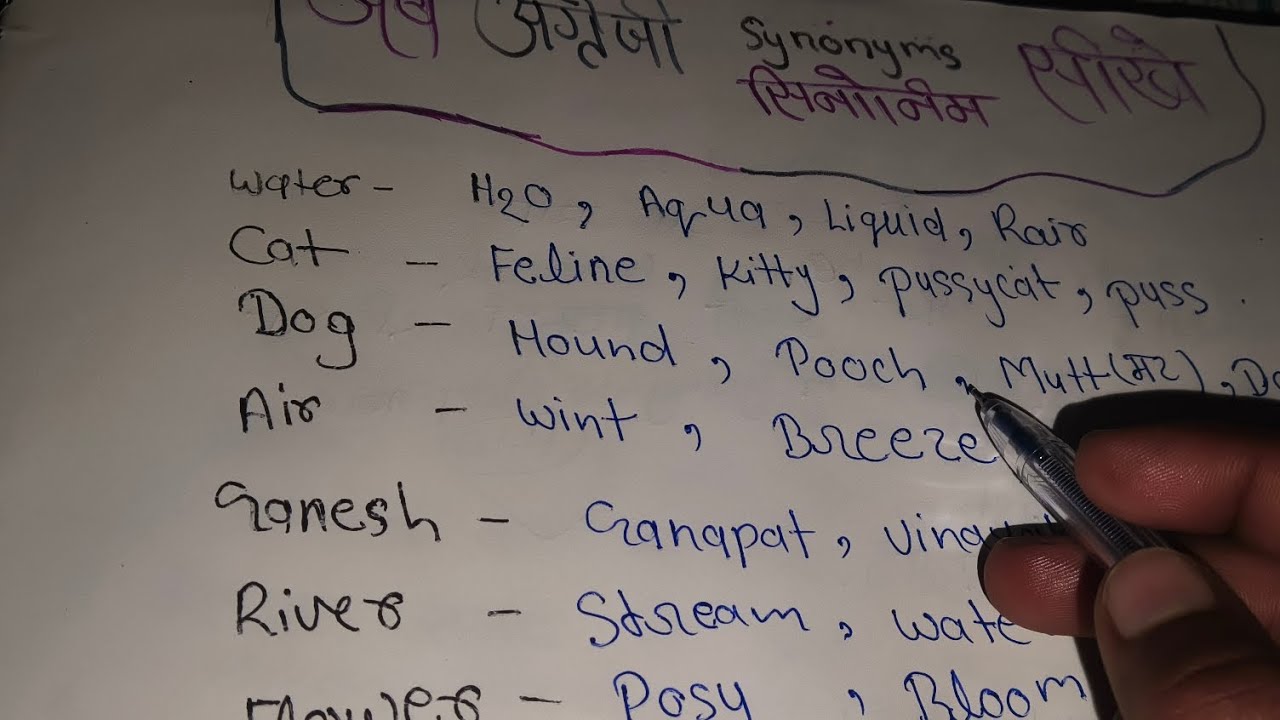 अब अंग्रेजी Synonyms सीखे
सिनोनिम
Water - H2O, Aqua, Liquid, Rair
Cat - Feline, Kitty, pussycat, puss.
Dog - Hound, Pooch, Mutt (मट),
Air - Wint, Breeze
Ganesh - Ganapat,
River - Stream,
Flowers - Posy, Bloom